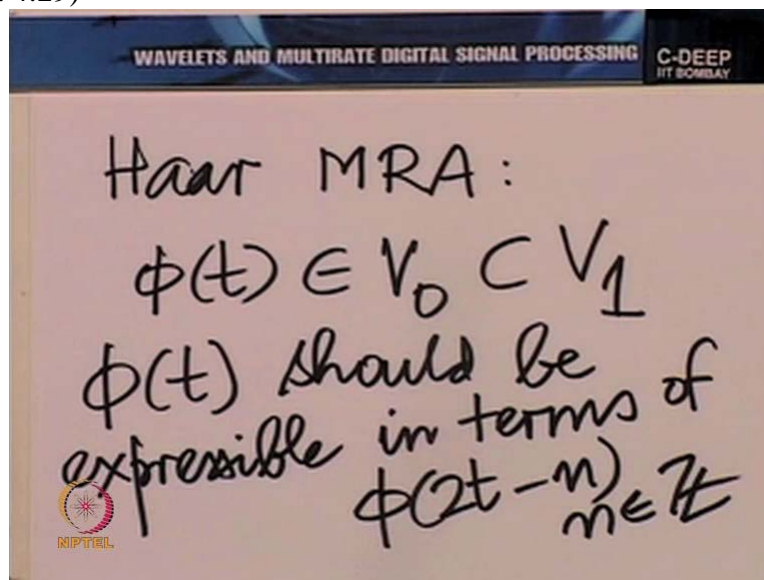 WAVELETS AND MULTIRATE DIGITAL SIGNAL PROCESSING
C-DEEP
IIT BOMBAY
Haar MRA :
ϕ(t) ∈ V₀ ⊂ V₁
ϕ(t) should be
expressible in terms of
ϕ(2t-n)
n∈ℤ
NPTEL